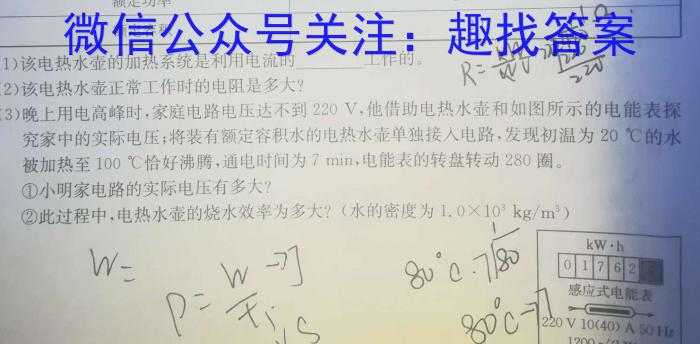 额定功率
微信公众号关注：趣找答案
额定容积
(1)该电热水壶的加热系统是利用电流的________工作的。
(2)该电热水壶正常工作时的电阻是多大?
(3)晚上用电高峰时,家庭电路电压达不到 220 V,他借助电热水壶和如图所示的电能表探
究家中的实际电压;将装有额定容积水的电热水壶单独接入电路,发现初温为 20 ℃的水
被加热至 100 ℃恰好沸腾,通电时间为 7 min,电能表的转盘转动 280 圈。
①小明家电路的实际电压有多大?
②此过程中,电热水壶的烧水效率为多大?(水的密度为 1.0×10³ kg/m³)
W=
80°C
80°C
kW·h
0 1 7 6 2
感应式电能表
220 V 10(40) A 50 Hz